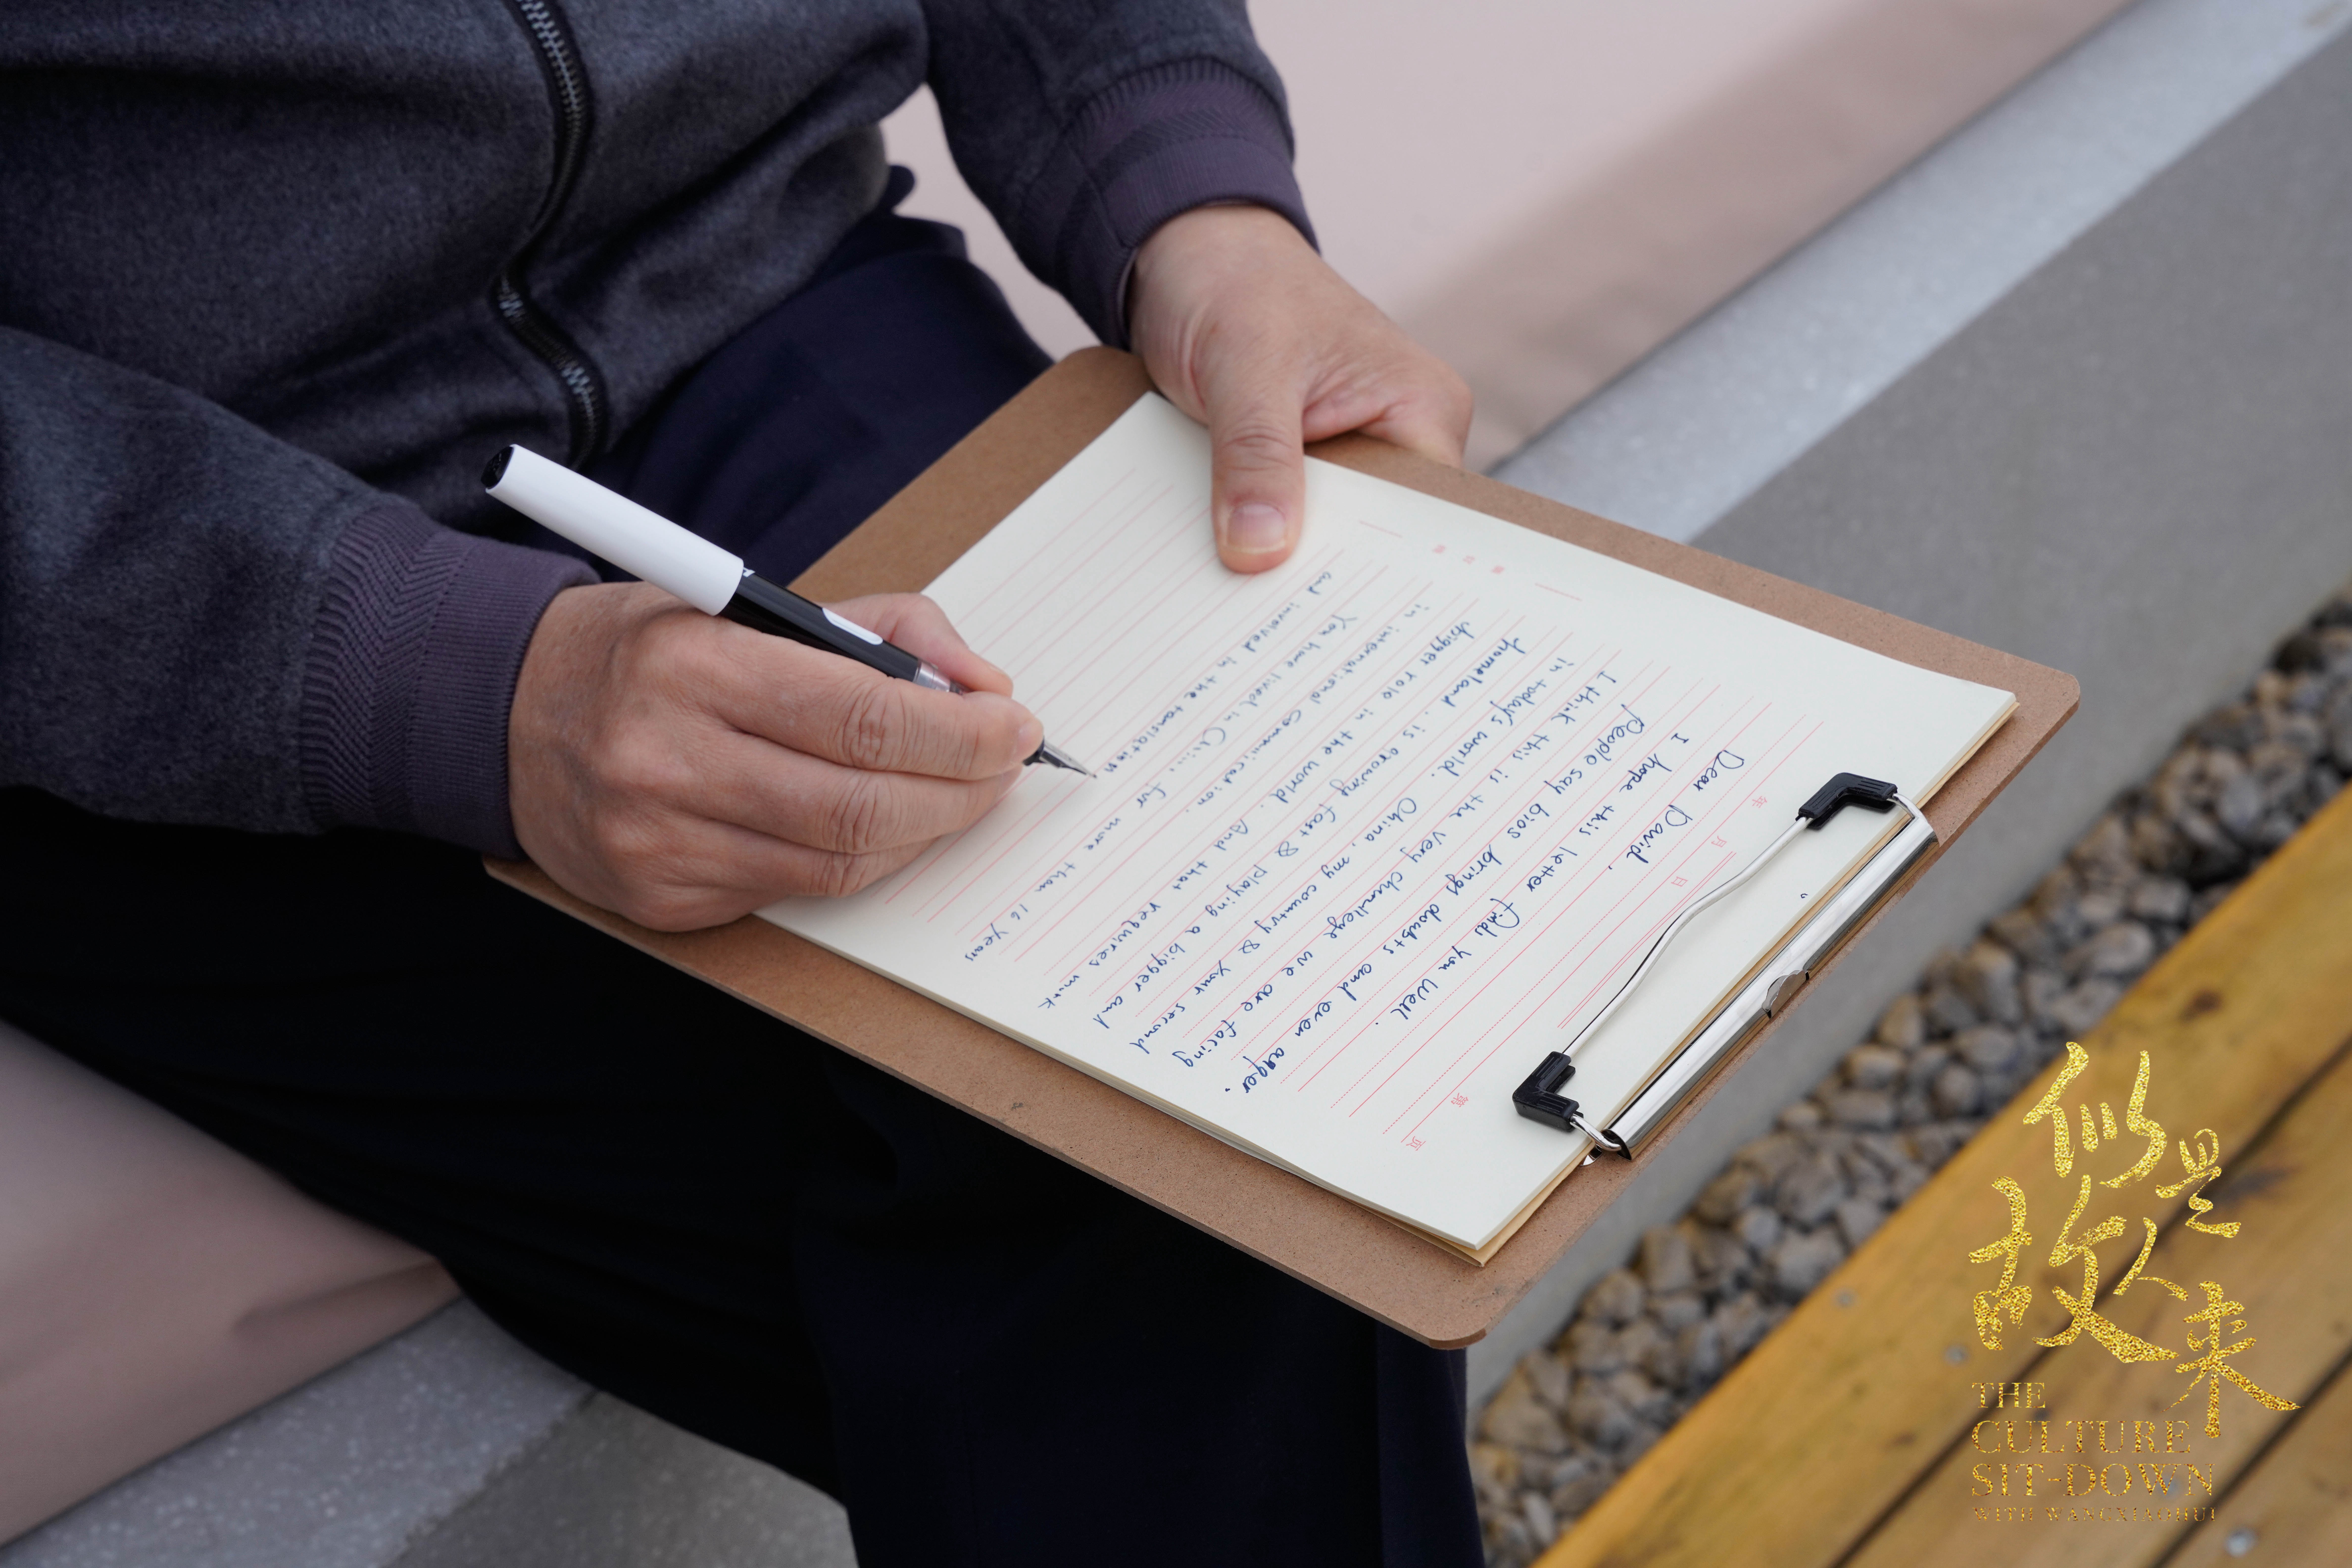 年 月 日 第 页
Dear David,
I hope this letter finds you well.
People say bias brings doubts and even anger.
I think this is the very challenge we are facing
in today's world. China, my country & your second
homeland, is growing fast & playing a bigger and
bigger role in the world. And that requires more
in international communication.
You have lived in China for more than 16 years
and involved in the translation
似是
故人来
THE
CULTURE
SIT-DOWN
WITH WANGXIAOHUI